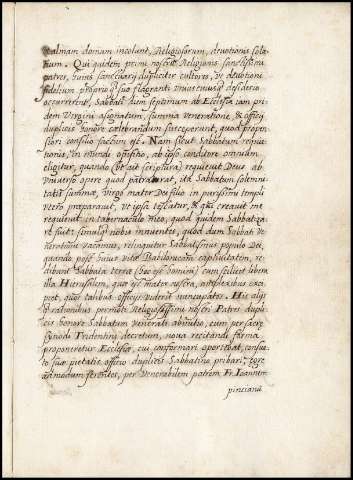 almam domum incolunt, Religiosorum, deuotionis sola
tium. Qui quidem primi nostræ Religionis sanctissimi
patres, huius sanctuarij dupliciter cultores, ut deuotioni
fidelium proprio q; suo flagranti uniuscuiusq; desiderio
occurrerent, Sabbati diem septimum ab Ecclesia iam pri
dem Virgini assignatum, summa veneratione, & officij
duplicis honore celebrandum susceperunt, quod propen
siori consilio factum est. Nam sicut Sabbatum requie
tionis, in mundi opificio, ab ipso conditore omnium
eligitur, quando (ut ait scriptura) requieuit Deus ab
vniuerso opere quod patrarat, ita Sabbatum solemni
tatis summæ, virgo mater Dei filio in purissimi templi
vtero præparauit, vt ipsa testatur, & qui creauit me
requieuit in tabernaculo meo, quod quidem Sabbatza
simulq; nobis innuentes, quod dum Sabbati
vacamus, relinquitur Sabbatismus populo Dei,
quando post huius vitæ Babilonicam captiuitatem, re
dibunt Sabbata terræ (hoc est hominum) cum scilicet libera
illa Hierusalem, quæ est mater nostra, amplexibus exci
pet, quos talibus officijs viderit nuncupatos. His alijs
q; rationibus permoti Religiosissimi nostri Patres dupli
cis honore Sabbatum venerati abunde, cum per sacræ
synodi Tridentinæ decretum, noua recitandi forma
proponeretur Ecclesiæ, cui conformari oportebat, consue
to suæ pietatis officio duplicis Sabbatino priuari, ægre
admodum ferentes, per Venerabilem patrem Fr. Joannem
pincianu